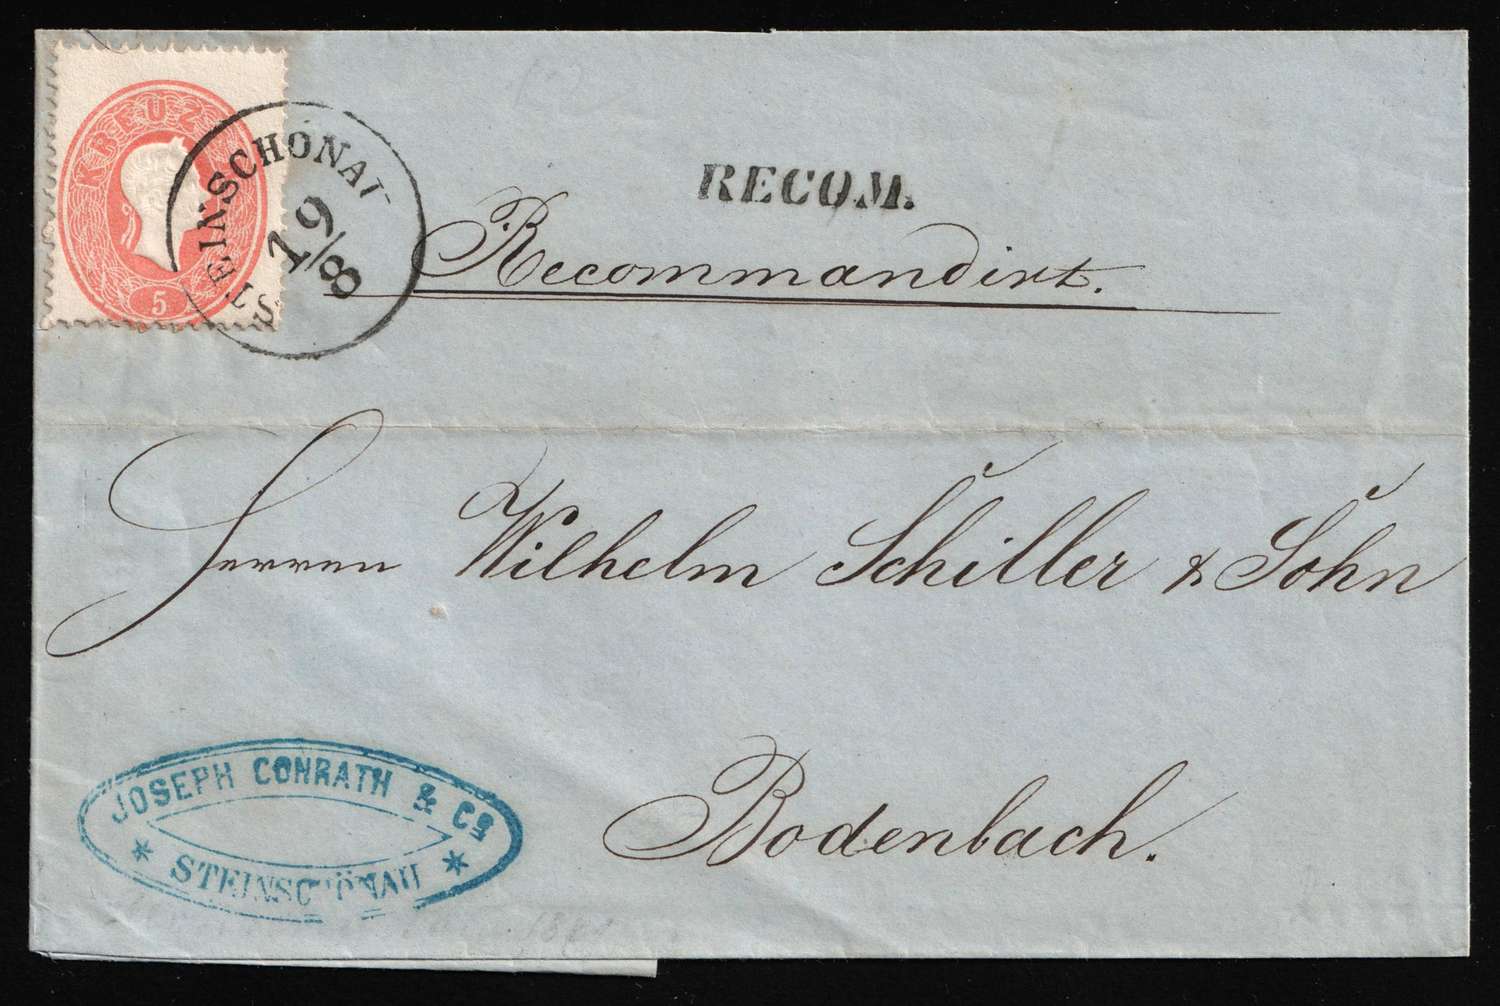 KREUZ
5
STEINSCHÖNAU
19/8
RECOM.
Recommandirt.
Herren Wilhelm Schiller & Sohn
Bodenbach.
JOSEPH CONRATH & Co
* STEINSCHÖNAU *